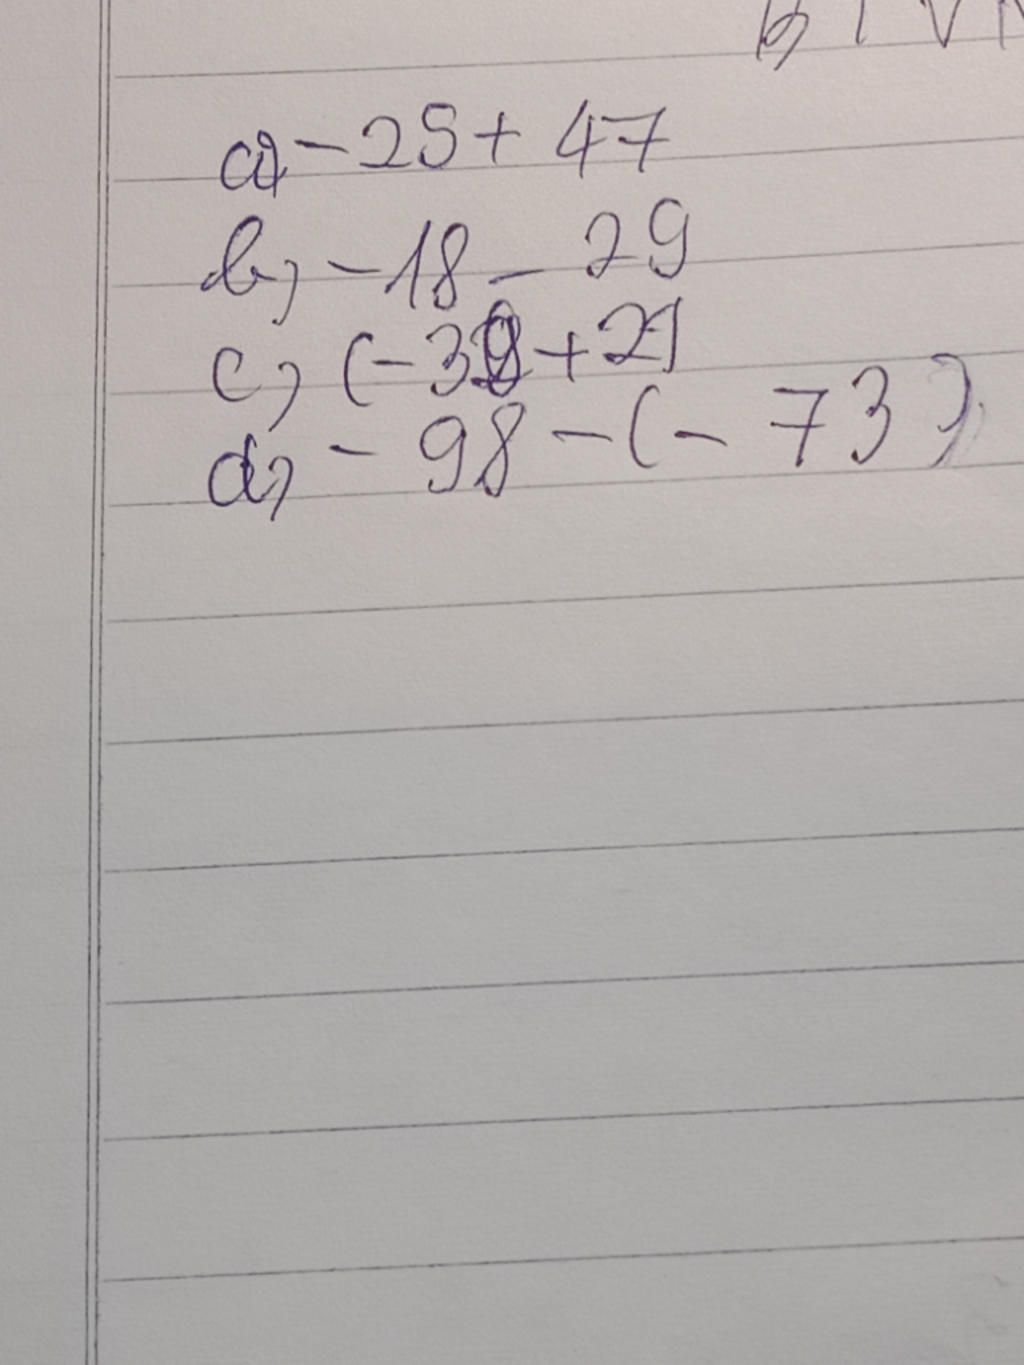 a) - 25 + 47
b, - 18 - 29
c, (- 39 + 21
d, - 98 - (- 73)